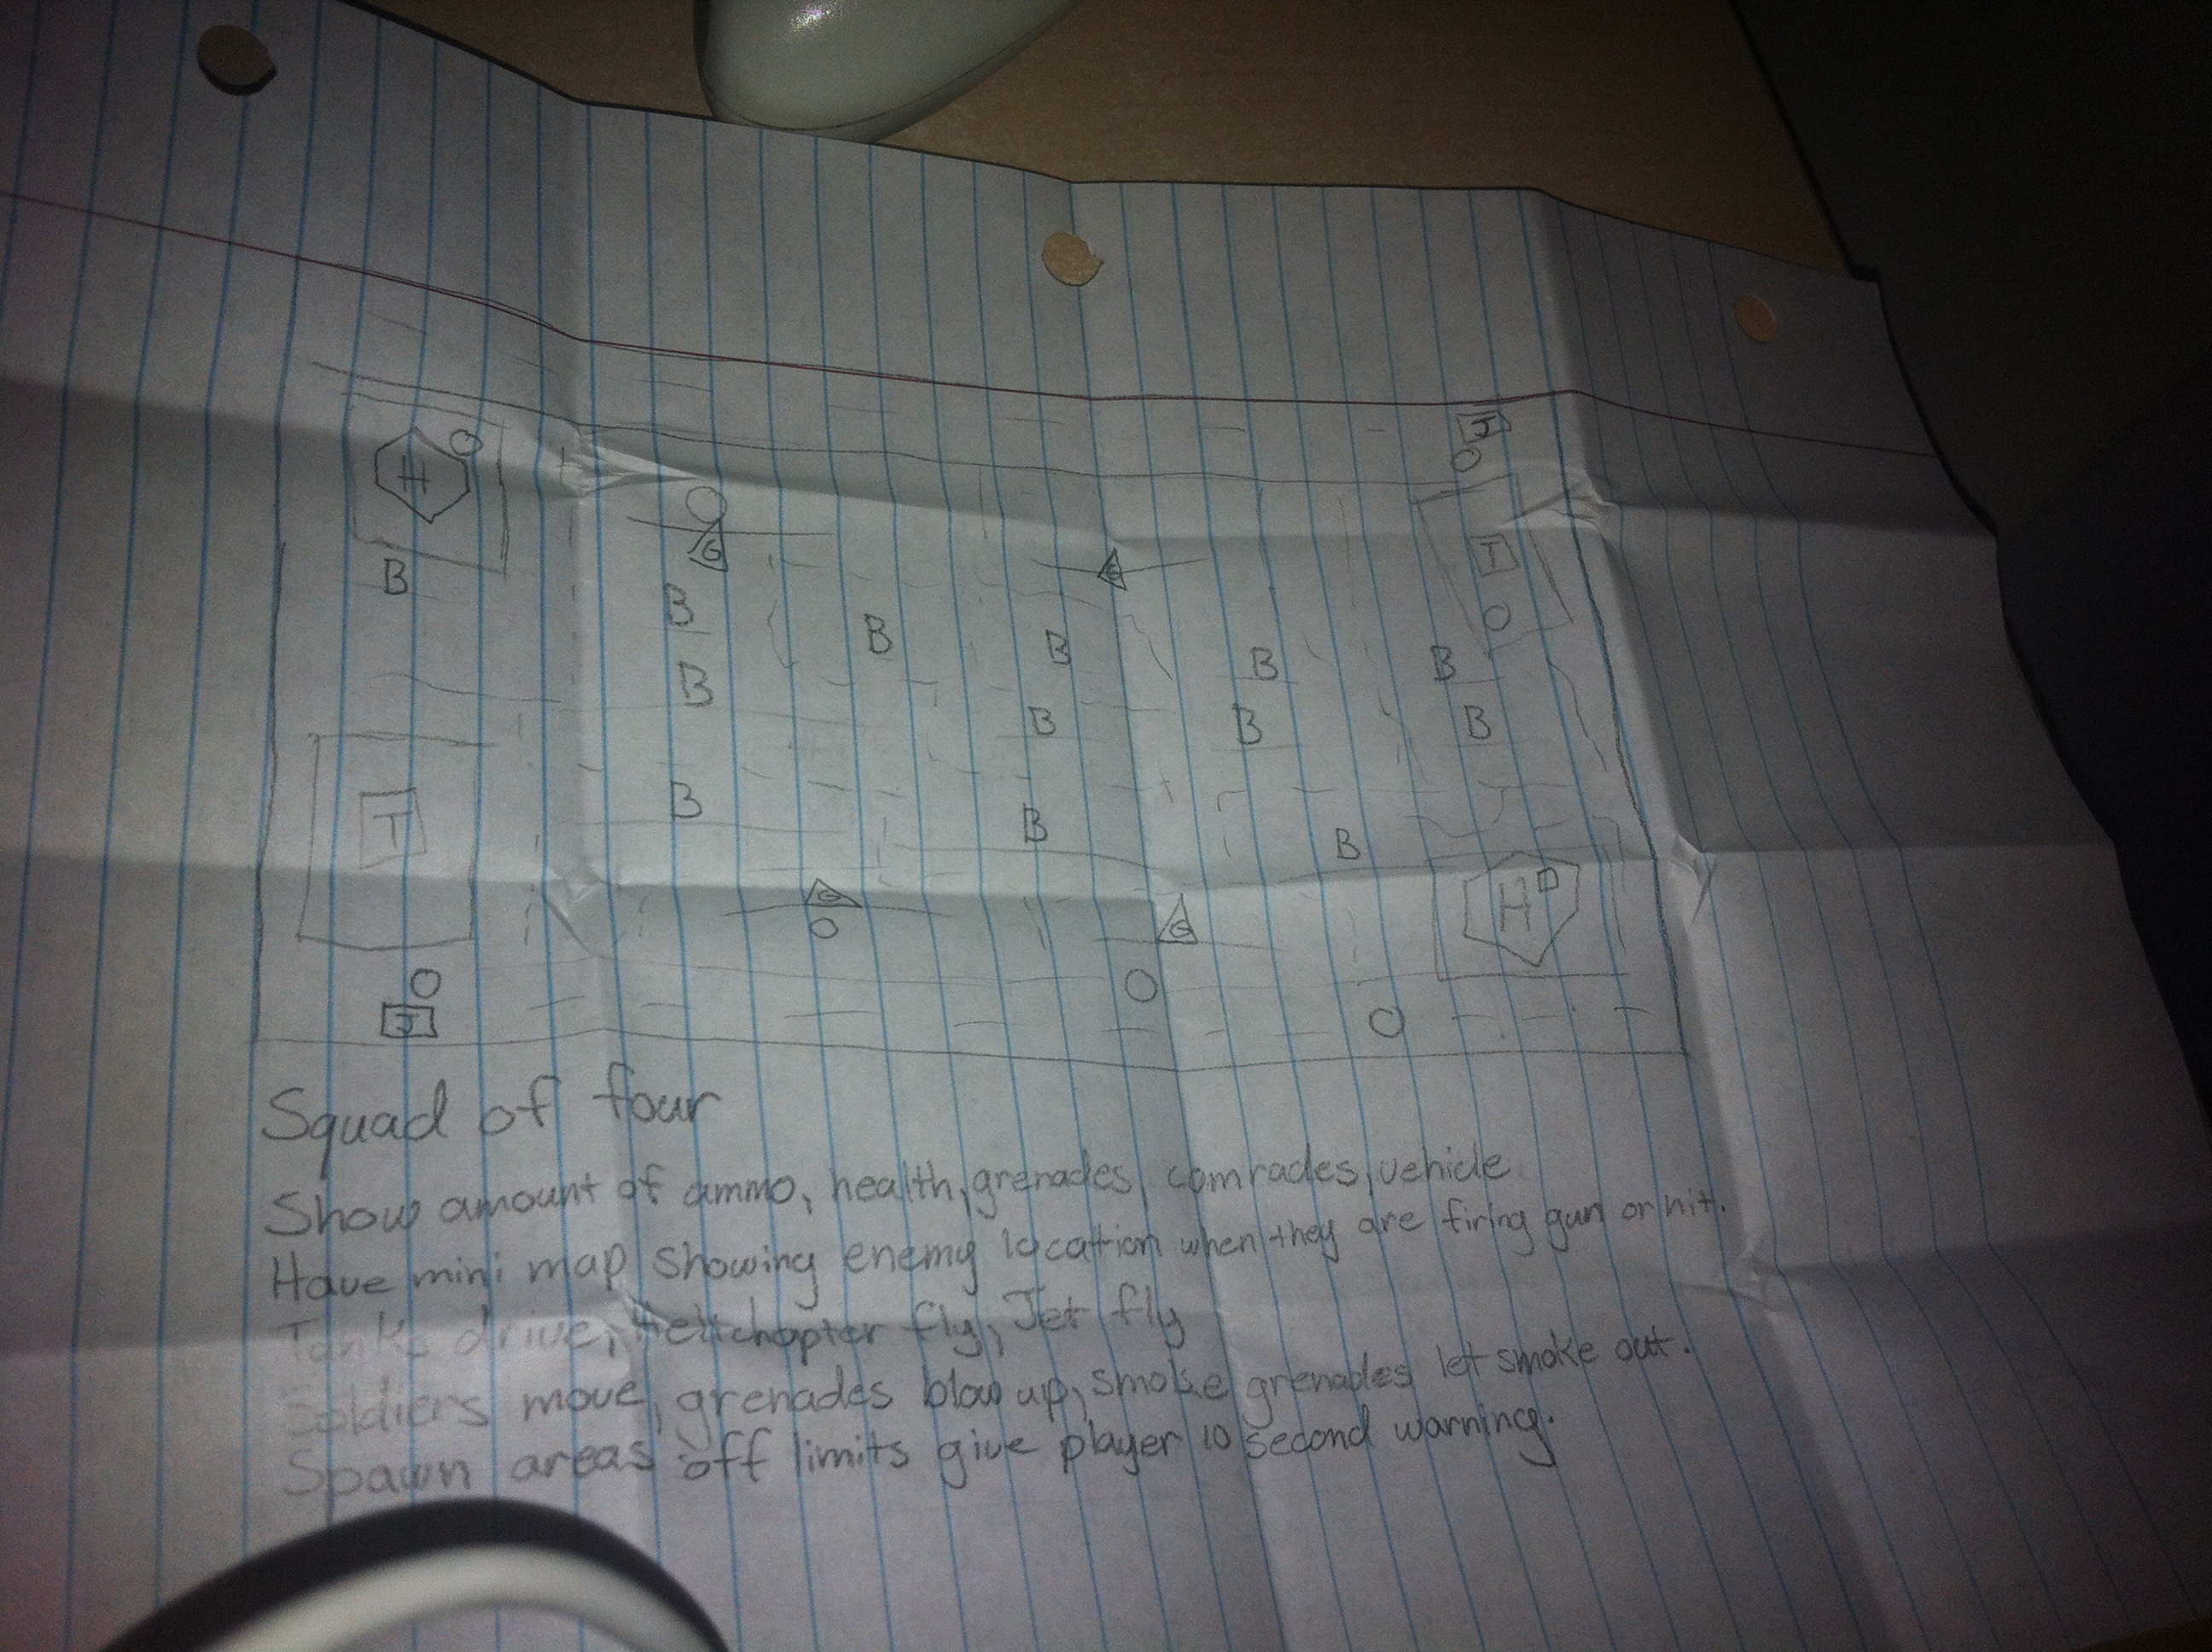 J
H
G
T
G
B
B
B
B
B
B
B
B
B
B
T
B
B
B
H
G
G
J
Squad of four
Show amount of ammo, health, grenades, comrades, vehicle
Have mini map showing enemy location when they are firing gun or hit.
Tanks drive, Helichopter fly, Jet fly
Soldiers move, grenades blow up, smoke grenades let smoke out.
Spawn areas off limits give player 10 second warning.